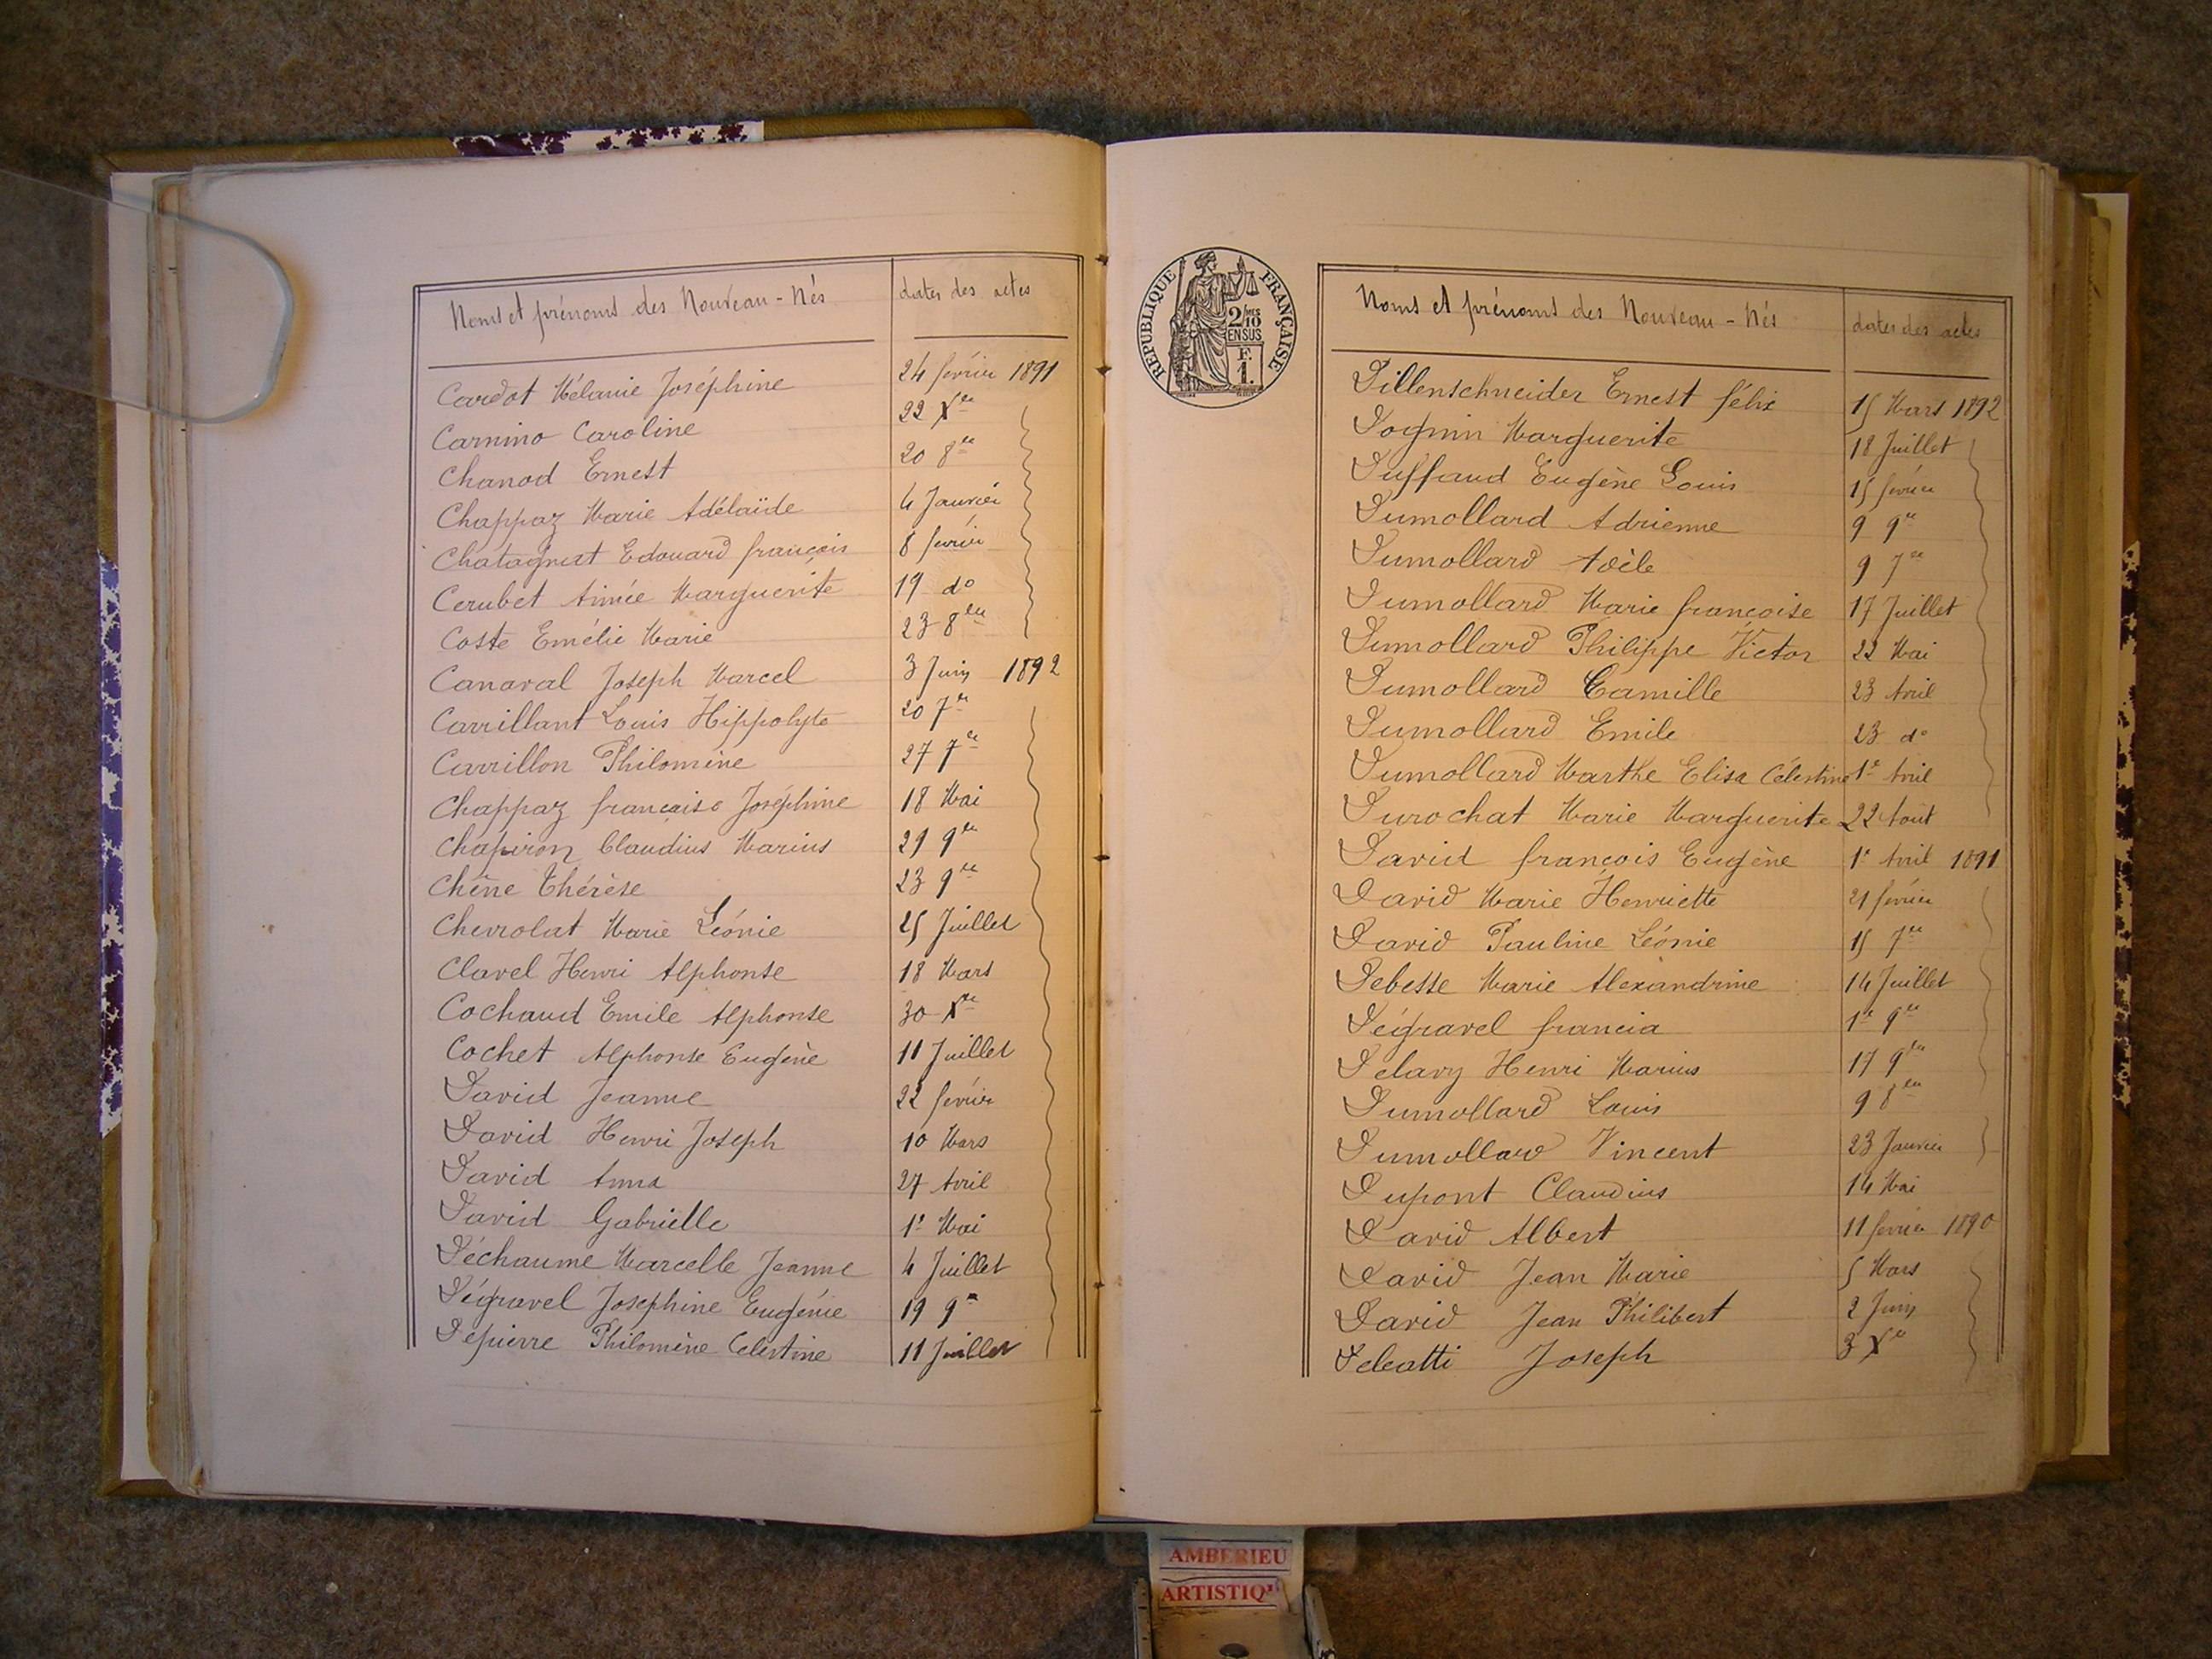 Noms et prénoms des Nouveau-Nés dates des actes
Cardot Mélanie Joséphine 24 février 1891
Carnino Caroline 22 Xbre
Chanod Ernest 20 8bre
Chappaz Marie Adélaïde 4 Janvier
Edouard françois 8 février
Cerubet Aimée Marguerite 19 do
Coste Emélie Marie 23 8bre
Canaval Joseph Marcel 3 Juin 1892
Carrillant Louis Hippolyte 20 7re
Carrillon Philomène 27 7re
Chappaz françoise Joséphine 18 Mai
Chapiron Claudius Marius 29 9re
Chêne Thérèse 23 9re
Chevrolat Marie Léonie 25 Juillet
Clavel Henri Alphonse 18 Mars
Cochaud Emile Alphonse 30 Xre
Cochet Alphonse Eugène 11 Juillet
David Jeanne 22 février
David Henri Joseph 10 Mars
David Anna 27 Avril
David Gabrielle 1er Mai
Déchaume Marcelle Jeanne 4 Juillet
Dégravel Josephine Eugénie 19 9re
Depierre Philomène Celestine 11 Juillet
REPUBLIQUE FRANÇAISE
2/10 MES
EN SUS
F.
1.
Noms et prénoms des Nouveau-Nés dates des actes
Dillenschneider Ernest félix 15 Mars 1892
Dognin Marguerite 18 Juillet
Duffaud Eugène Louis 15 février
Dumollard Adrienne 9 9re
Dumollard Adèle 9 7re
Dumollard Marie françoise 17 Juillet
Dumollard Philippe Victor 22 Mai
Dumollard Camille 23 Avril
Dumollard Emile 23 do
Dumollard Marthe Elisa Célestine 1er Avril
Durochat Marie Marguerite 22 Août
David françois Eugène 1er Avril 1891
David Marie Henriette 21 février
David Pauline Léonie 15 7re
Debesse Marie Alexandrine 14 Juillet
Dégravel francia 1er 9re
Delavy Henri Marius 17 9bre
Dumollard Louis 9 8bre
Dumollard Vincent 23 Janvier
Dupont Claudius 14 Mai
David Albert 11 fevrier 1890
David Jean Marie 5 Mars
David Jean Philibert 2 Juin
Deleatti Joseph 3 Xre
AMBERIEU
ARTISTIQU